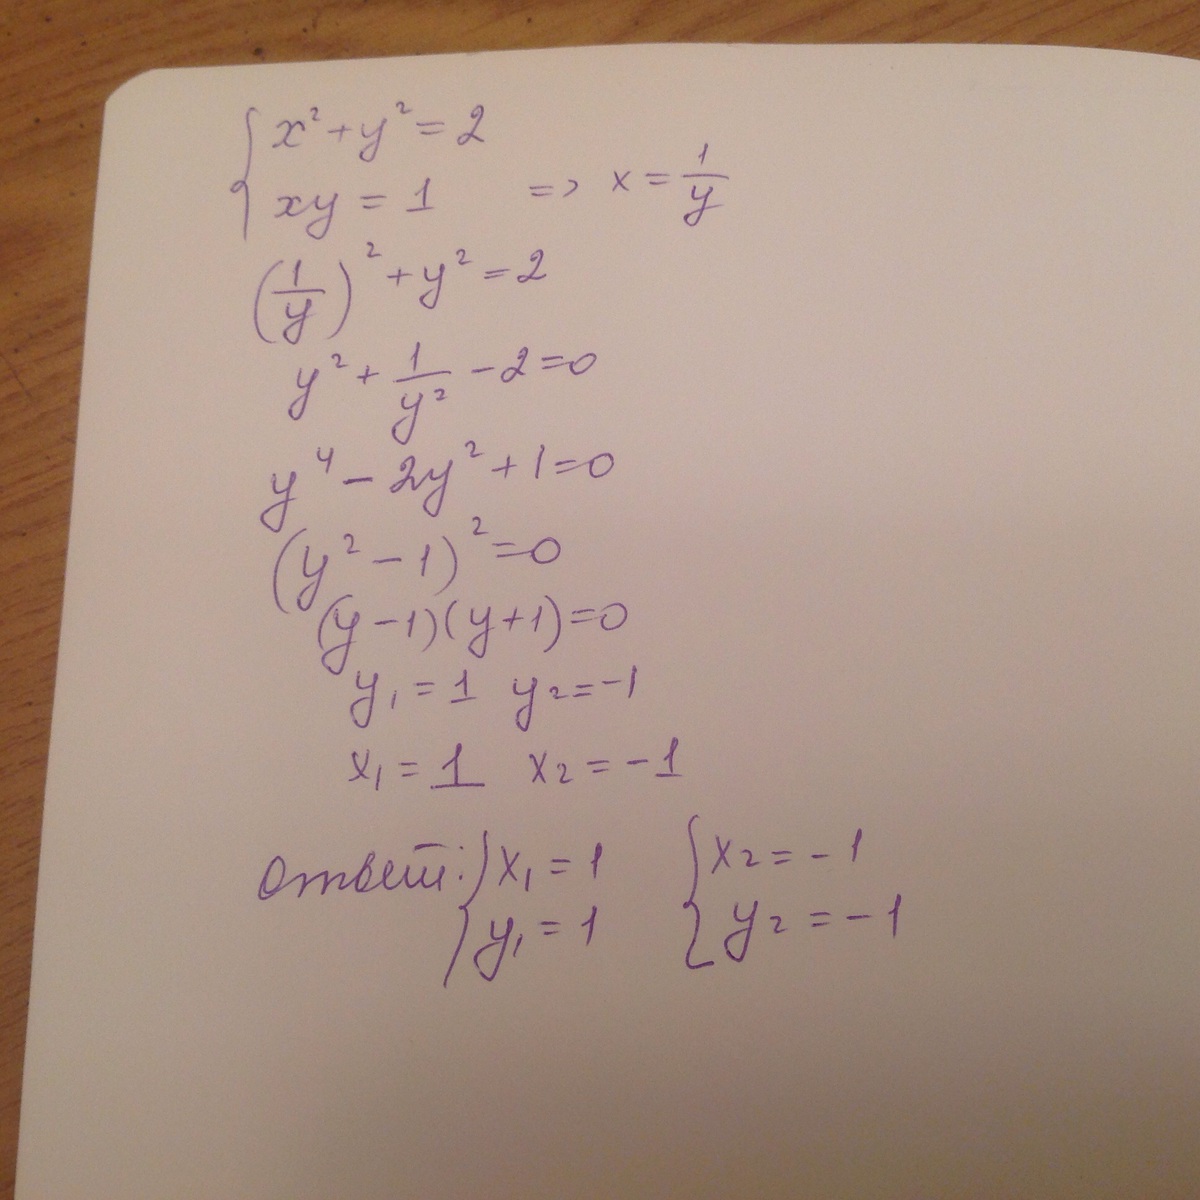 { x² + y² = 2
xy = 1 => x = 1/y
(1/y)² + y² = 2
y² + 1/y² - 2 = 0
y⁴ - 2y² + 1 = 0
(y² - 1)² = 0
(y - 1)(y + 1) = 0
y₁ = 1 y₂ = -1
x₁ = 1 x₂ = -1
Ответ: { x₁ = 1 { x₂ = -1
y₁ = 1 y₂ = -1